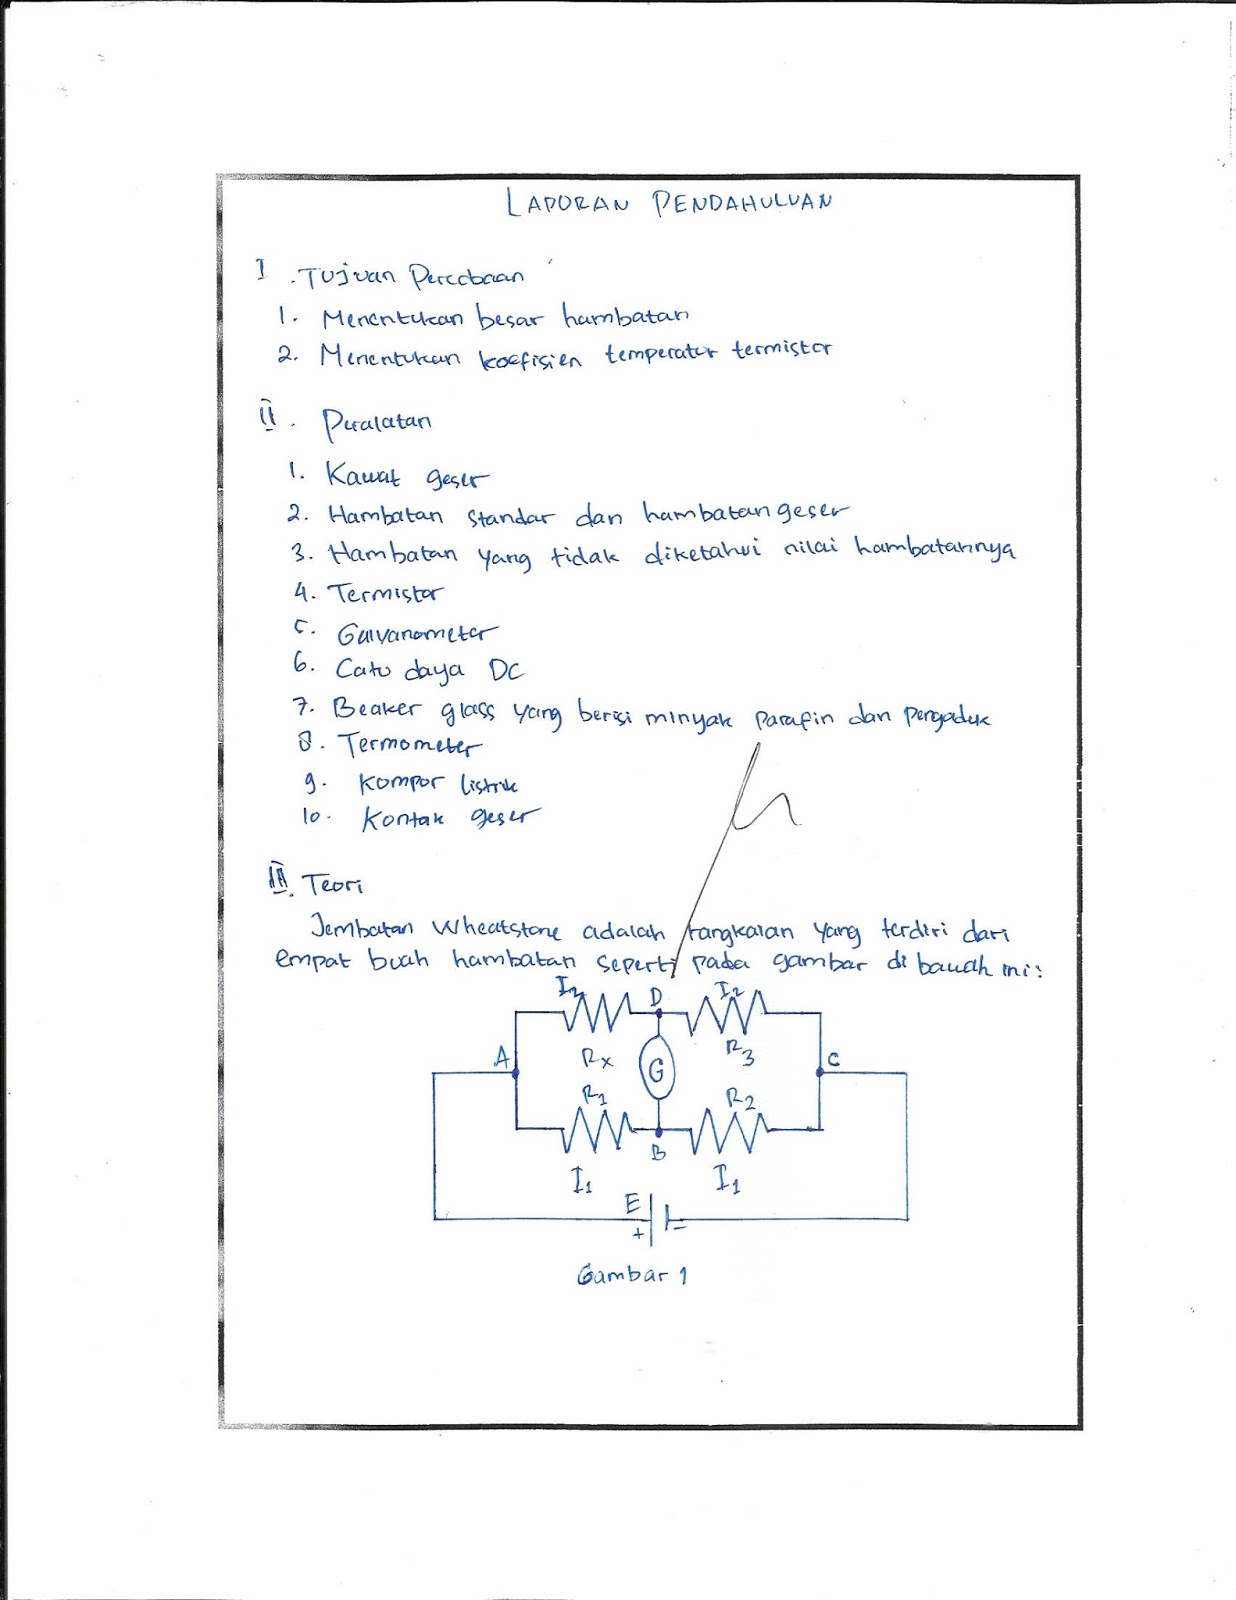 LAPORAN PENDAHULUAN
I. Tujuan Percobaan
1. Menentukan besar hambatan
2. Menentukan koefisien temperatur termistor
II. Peralatan
1. Kawat geser
2. Hambatan standar dan hambatan geser
3. Hambatan yang tidak diketahui nilai hambatannya
4. Termistor
5. Galvanometer
6. Catu daya DC
7. Beaker glass yang berisi minyak parafin dan pengaduk
8. Termometer
9. Kompor listrik
10. Kontak geser
III. Teori
Jembatan Wheatstone adalah rangkaian yang terdiri dari
empat buah hambatan seperti pada gambar di bawah ini:
I2 D I2
A Rx G R3 C
R1 R2
B
I1 I1
E
+ -
Gambar 1